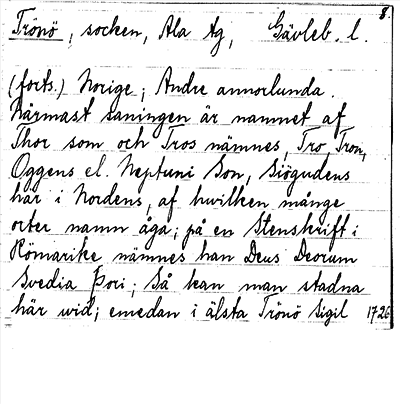 8.
Trönö, socken, Ala tg, Gävleb. l.
(forts.) Norige; Andre annorlunda.
Närmast saningen är namnet af
Thor som och Tros nämnes, Tro, Tron,
Oggens el. Neptuni Son, Siögudens
här i Nordens, af hwilken månge
orter namn äga; på en Stenskrift i
Römarike nämnes han Deus Deorum
Svedia Þori; Så kan man stadna
här wid; emedan i älsta Trönö Sigil 1726